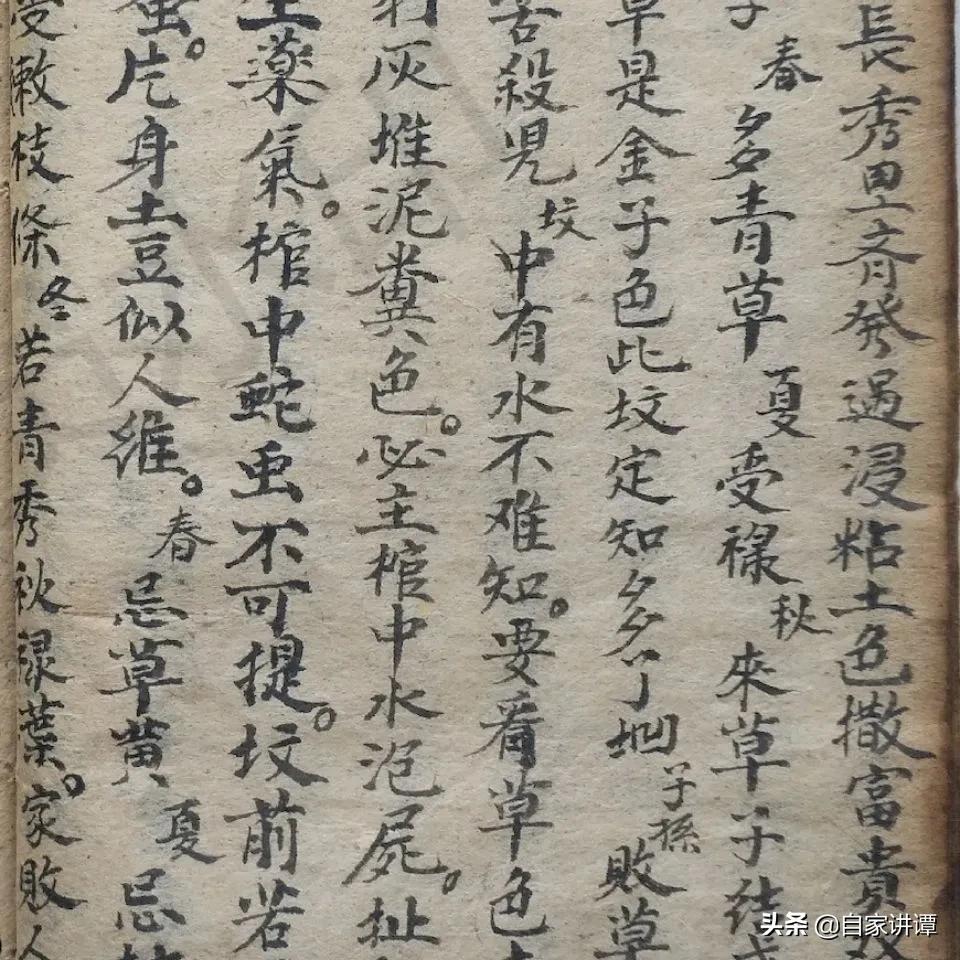 長秀里斉發過浸粘土色撒富貴
子春多青草夏受禄秋來草子結
草是金子色此坟定知多了地子孫敗草
害殺児坟中有水不难知。要看草色
灰堆泥糞色。必主棺中水泡屍。扯
生藥氣。棺中蛇虫不可提。坟前若
虫。片身土豆似人維。春忌草黄夏忌
受嫩枝條冬若青秀秋禄葉。家敗人
头条 @自家讲谭